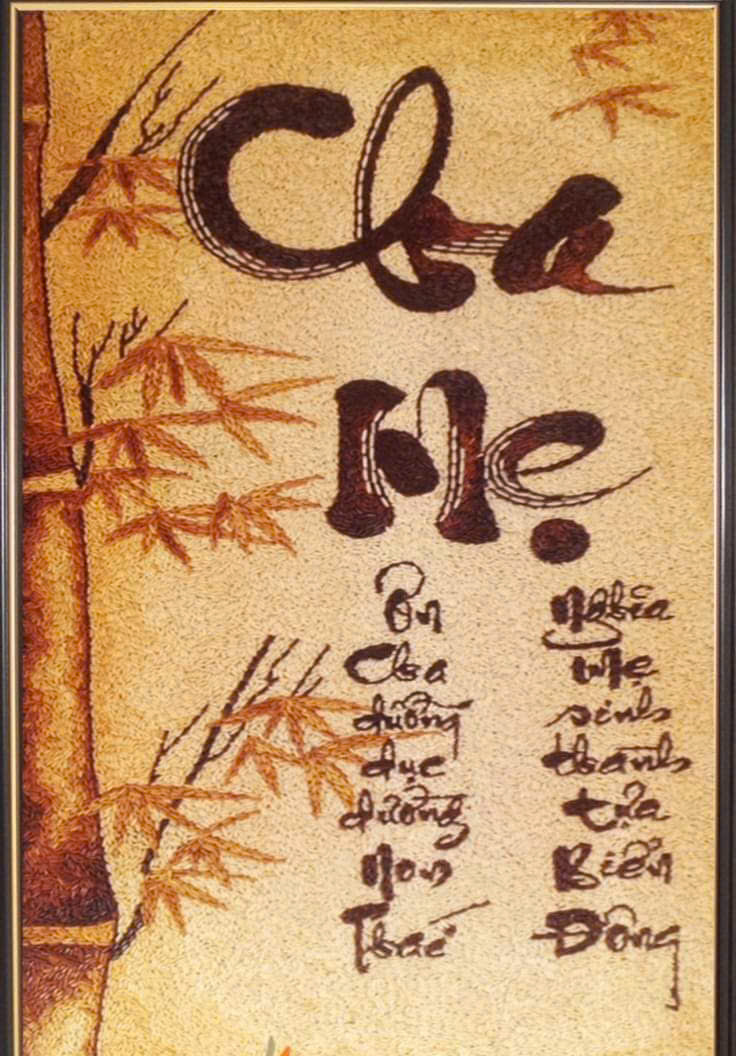 Cha
Mẹ
Ơn
Cha
dưỡng
dục
dường
Non
Thái
Nghĩa
Mẹ
sinh
thành
tựa
Biển
Đông